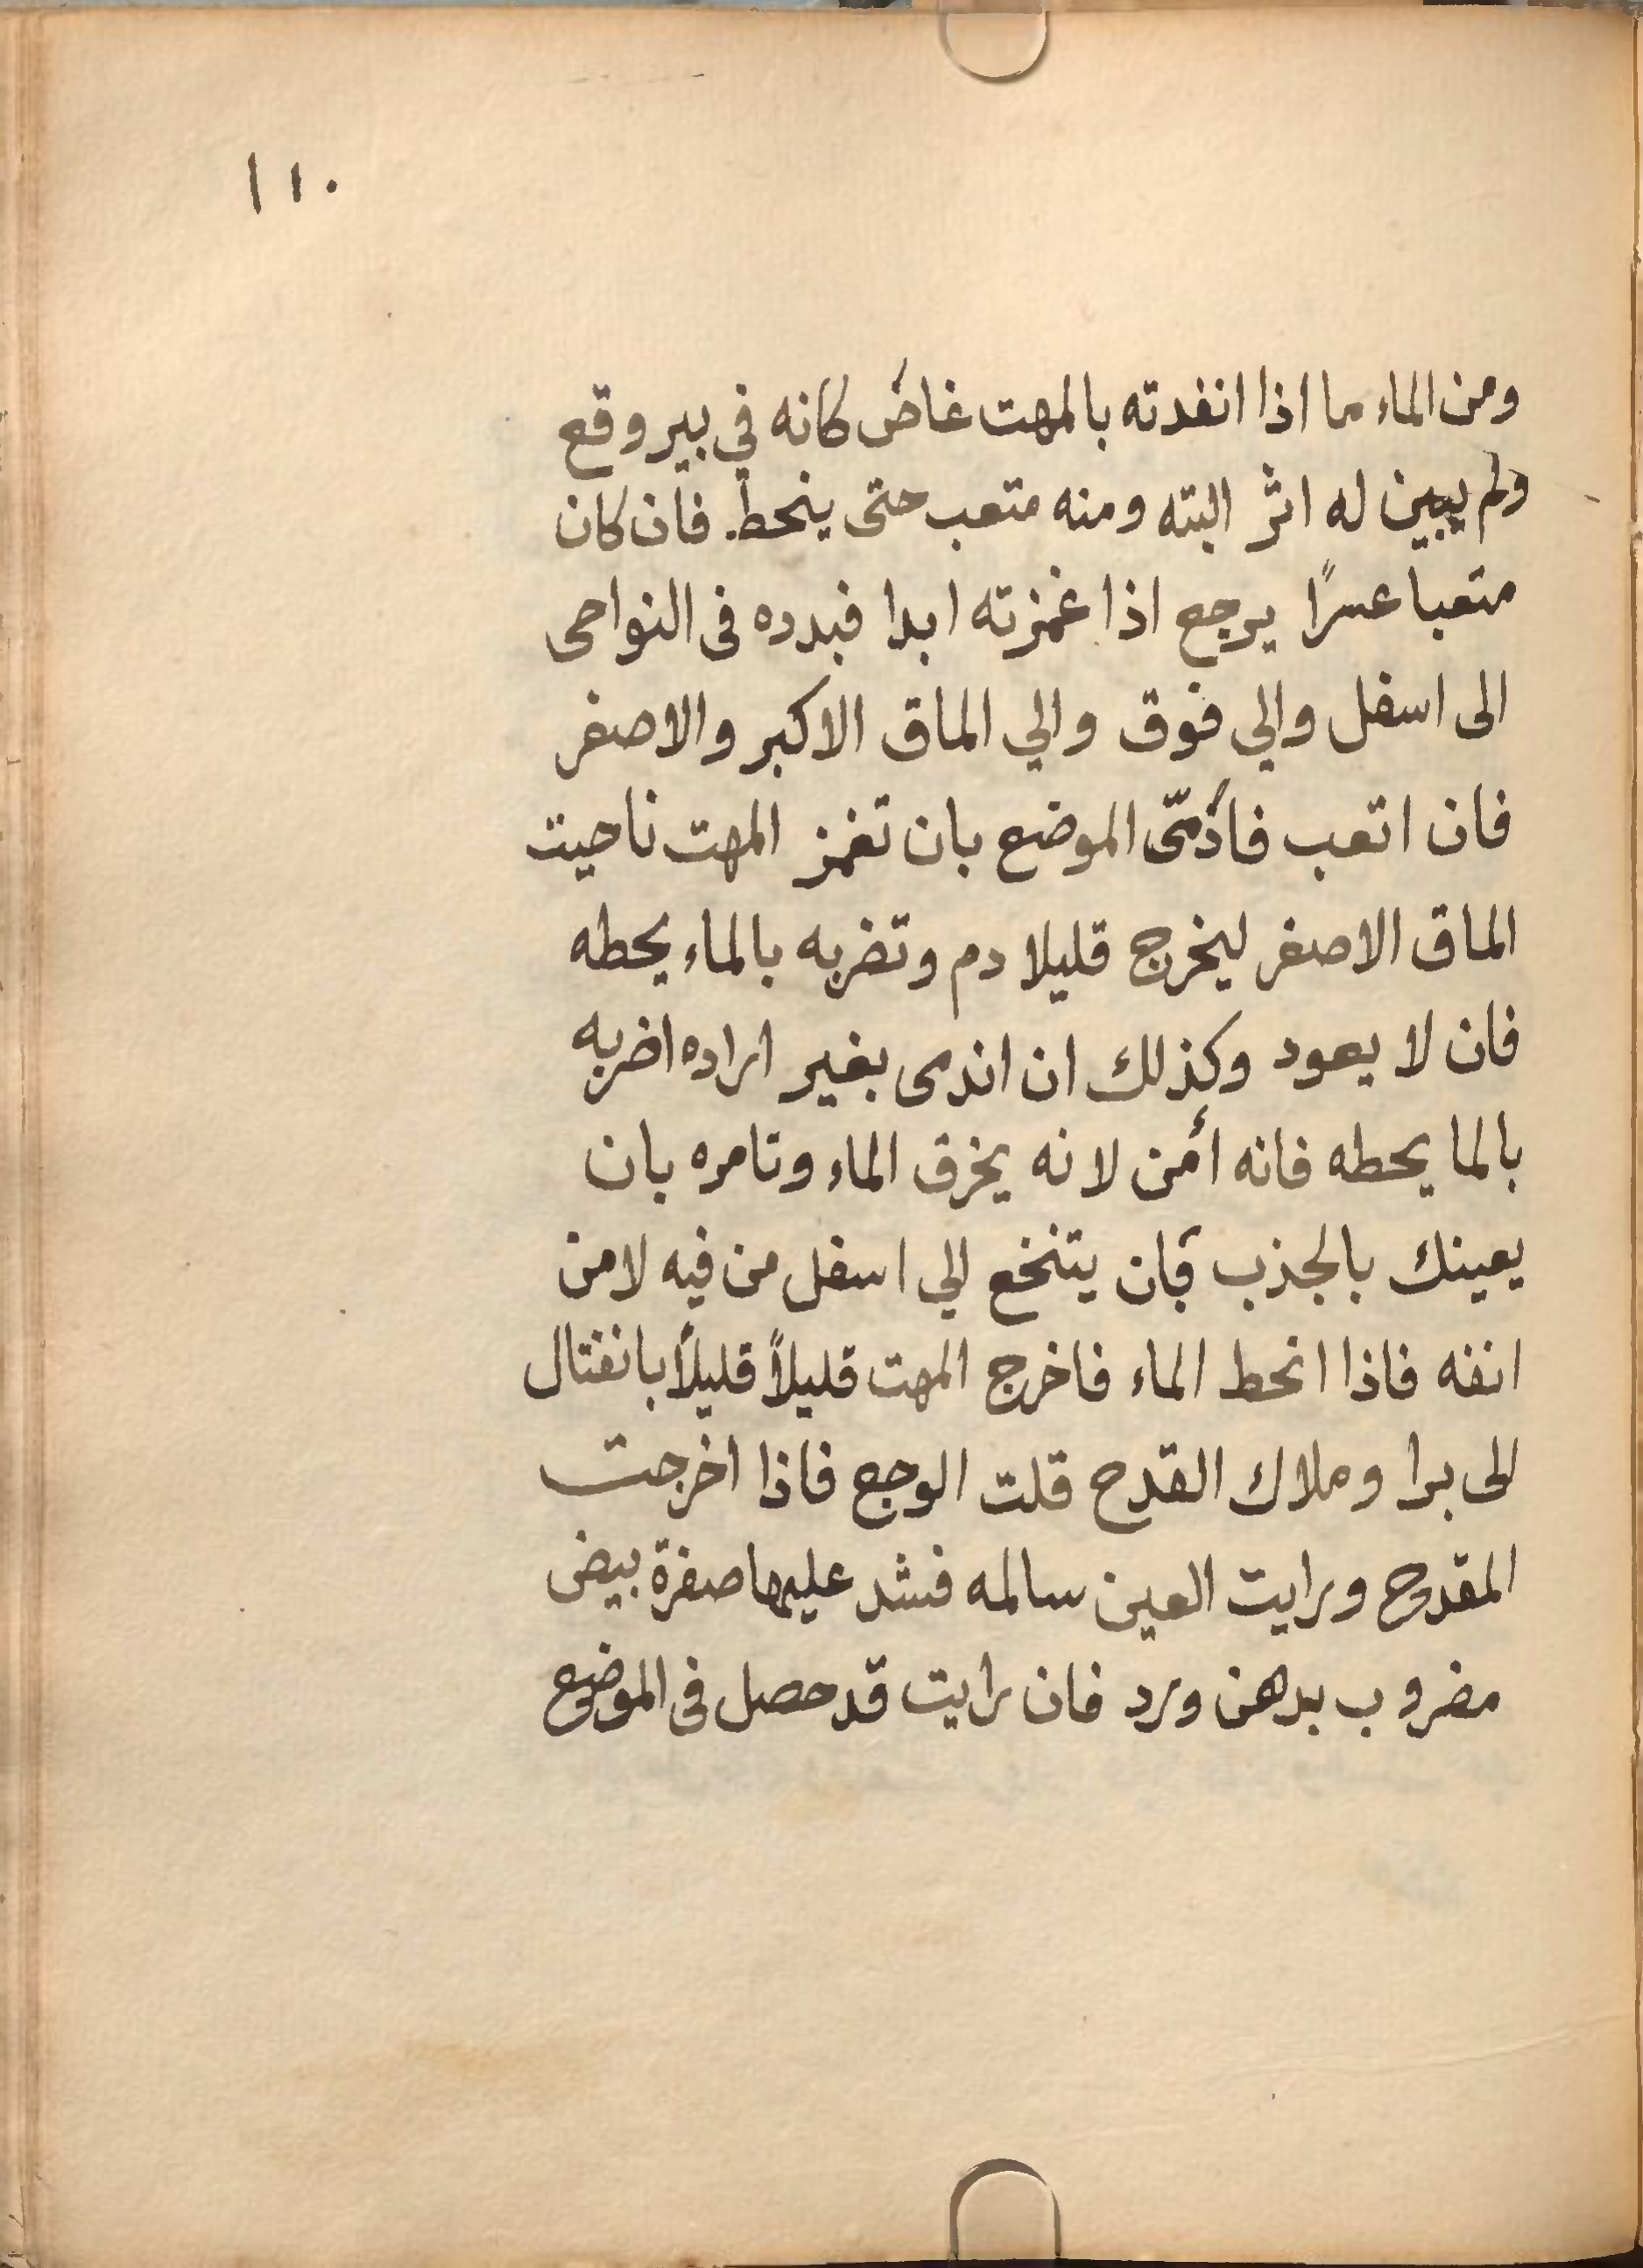 ١١٠
ومن الماء ما اذا انفدته بالمهت غاض كانه في بير وقع
ولم يبين له اثر البته ومنه متعب حتى ينحط. فان كان
متعبا عسرًا يرجع اذا غمزته ابدا فبدده فى النواحى
الى اسفل والي فوق والي الماق الاكبر والاصغر
فان اتعب فأدمّى الموضع بان تغمز المهت ناحيت
الماق الاصغر ليخرج قليلا دم وتضربه بالماء يحطه
فان لا يعود وكذلك ان اندمى بغير اراده اضربه
بالما يحطه فانه أمن لانه يخرق الماء وتامره بان
يعينك بالجذب بان يتنخع الي اسفل من فيه لا من
انفه فاذا انحط الماء فاخرج المهت قليلاً قليلاً بانفتال
الى برا وملاك القدح قلت الوجع فاذا اخرجت
المقدوح ورايت العين سالمه فشد عليها صفرة بيض
مضروب بدهن ورد فان رايت قد حصل فى الموضع